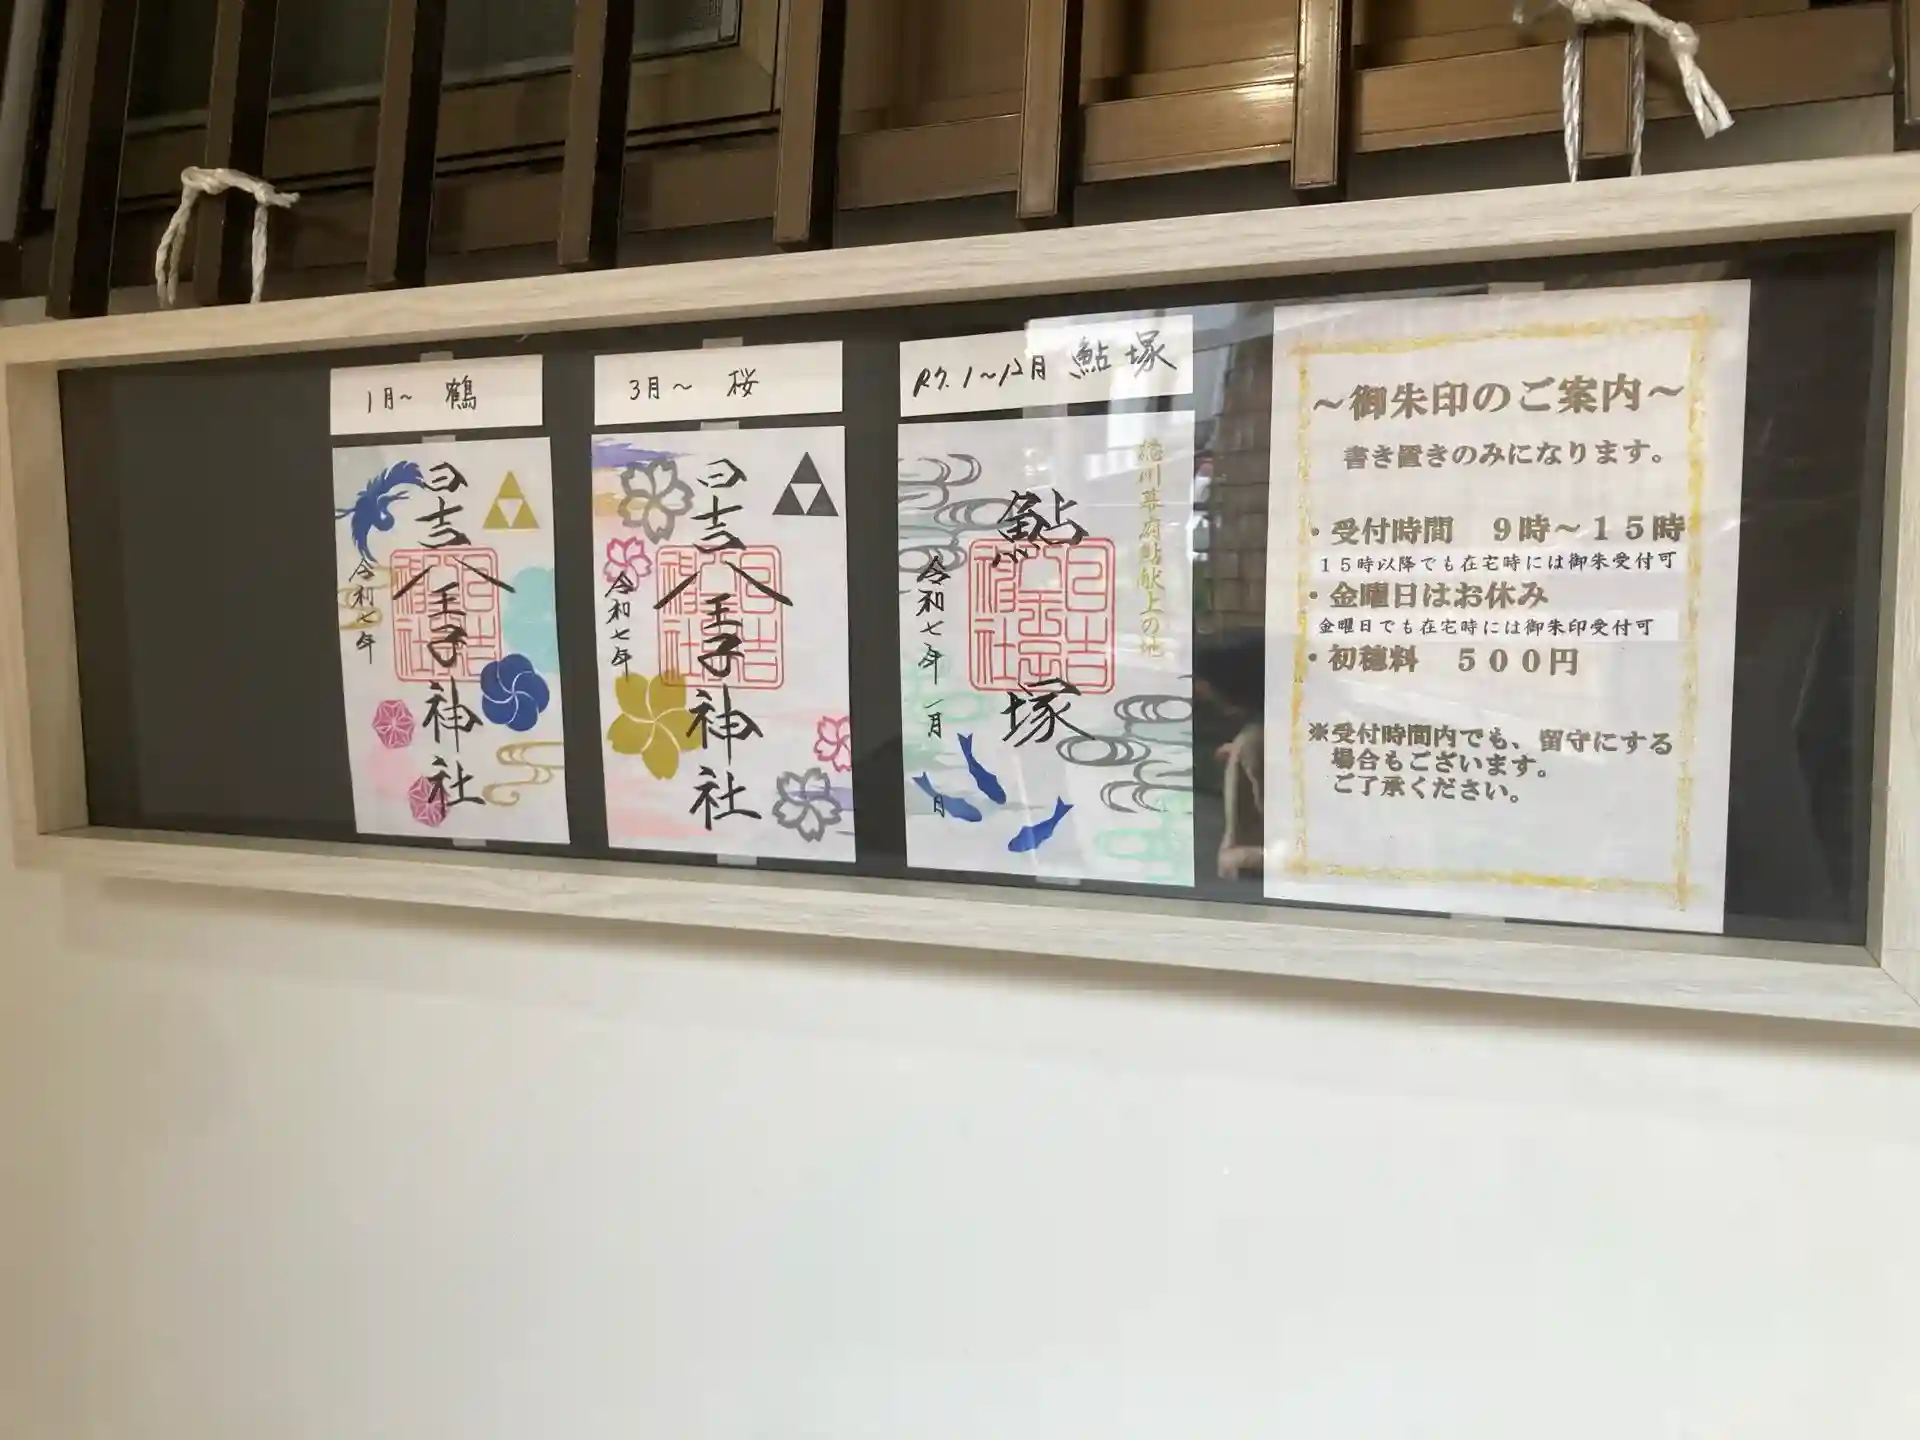 1月～ 鶴
日吉八王子神社
令和七年
3月～ 桜
日吉八王子神社
令和七年
R7.1～12月 鮎塚
徳川幕府鮎献上の地
鮎塚
令和七年 一月 日
日吉八王子神社
～御朱印のご案内～
書き置きのみになります。
・受付時間 9時～15時
15時以降でも在宅時には御朱受付可
・金曜日はお休み
金曜日でも在宅時には御朱印受付可
・初穂料 500円
※受付時間内でも、留守にする
場合もございます。
ご了承ください。